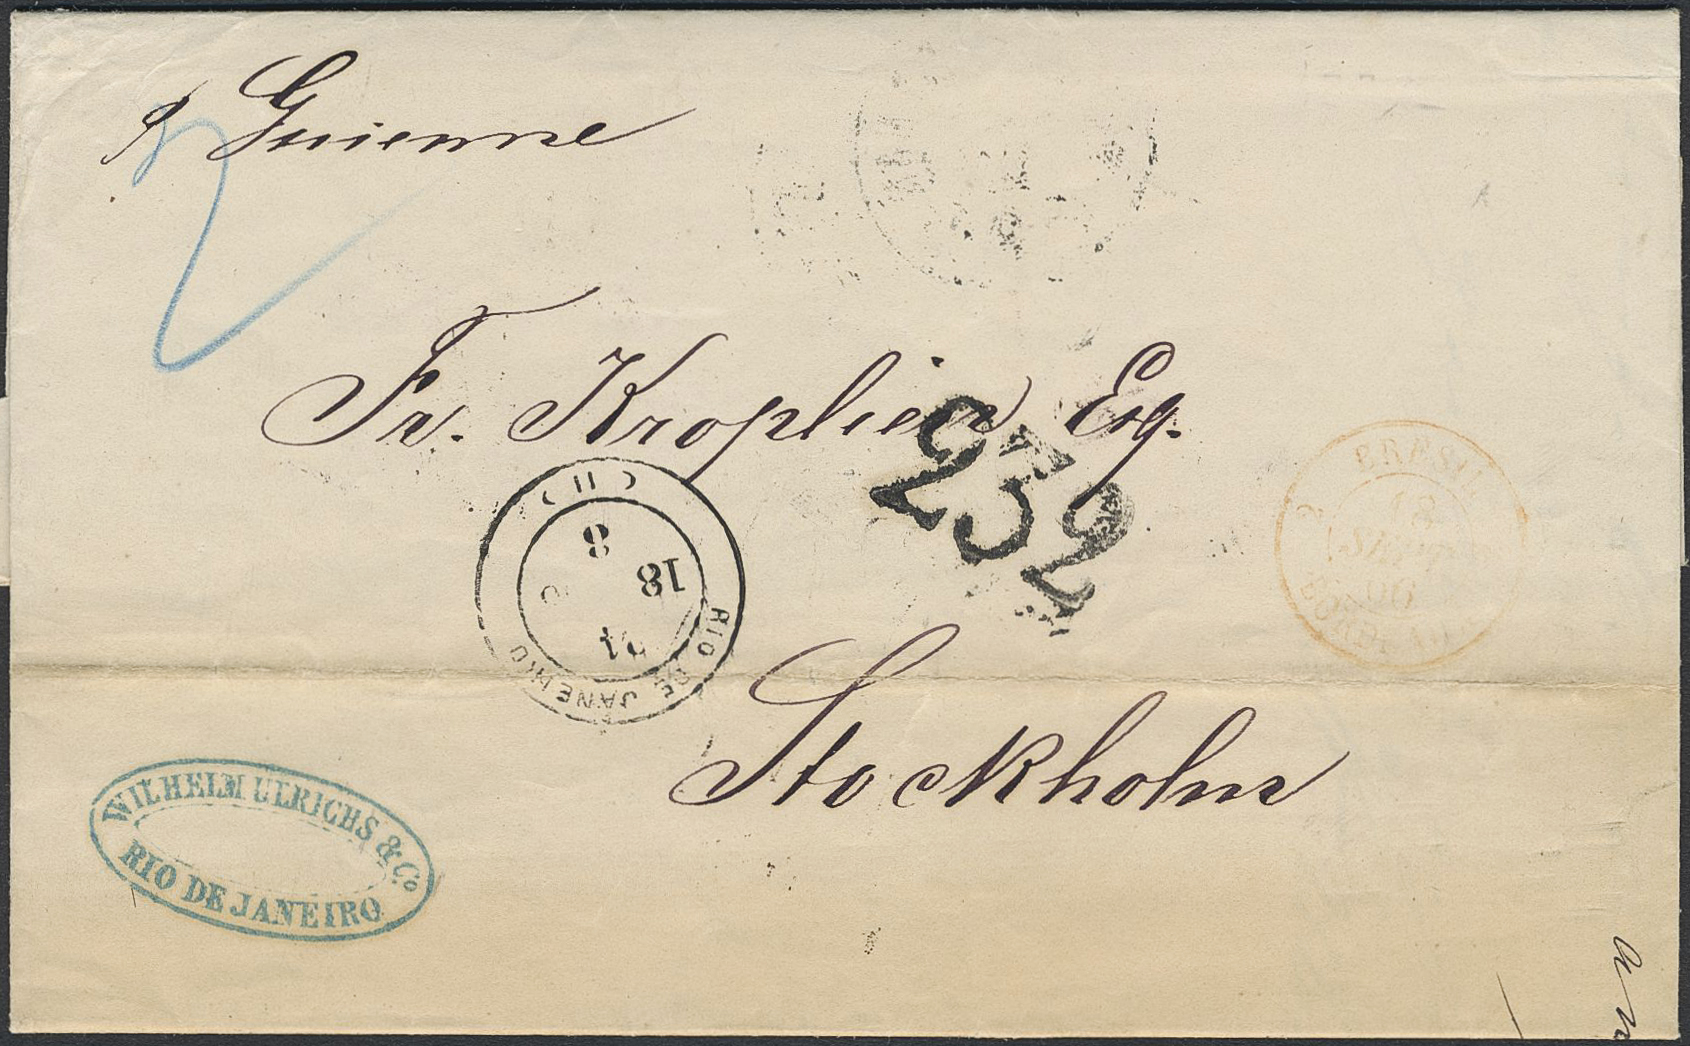 p Guienne
2
Fr. Kroplien Esq.
232
BRESIL
2
18
SEPT
BORDEAUX
8
18
24
RIO DE JANEIRO
Stockholm
WILHELM ULRICHS & Co.
RIO DE JANEIRO